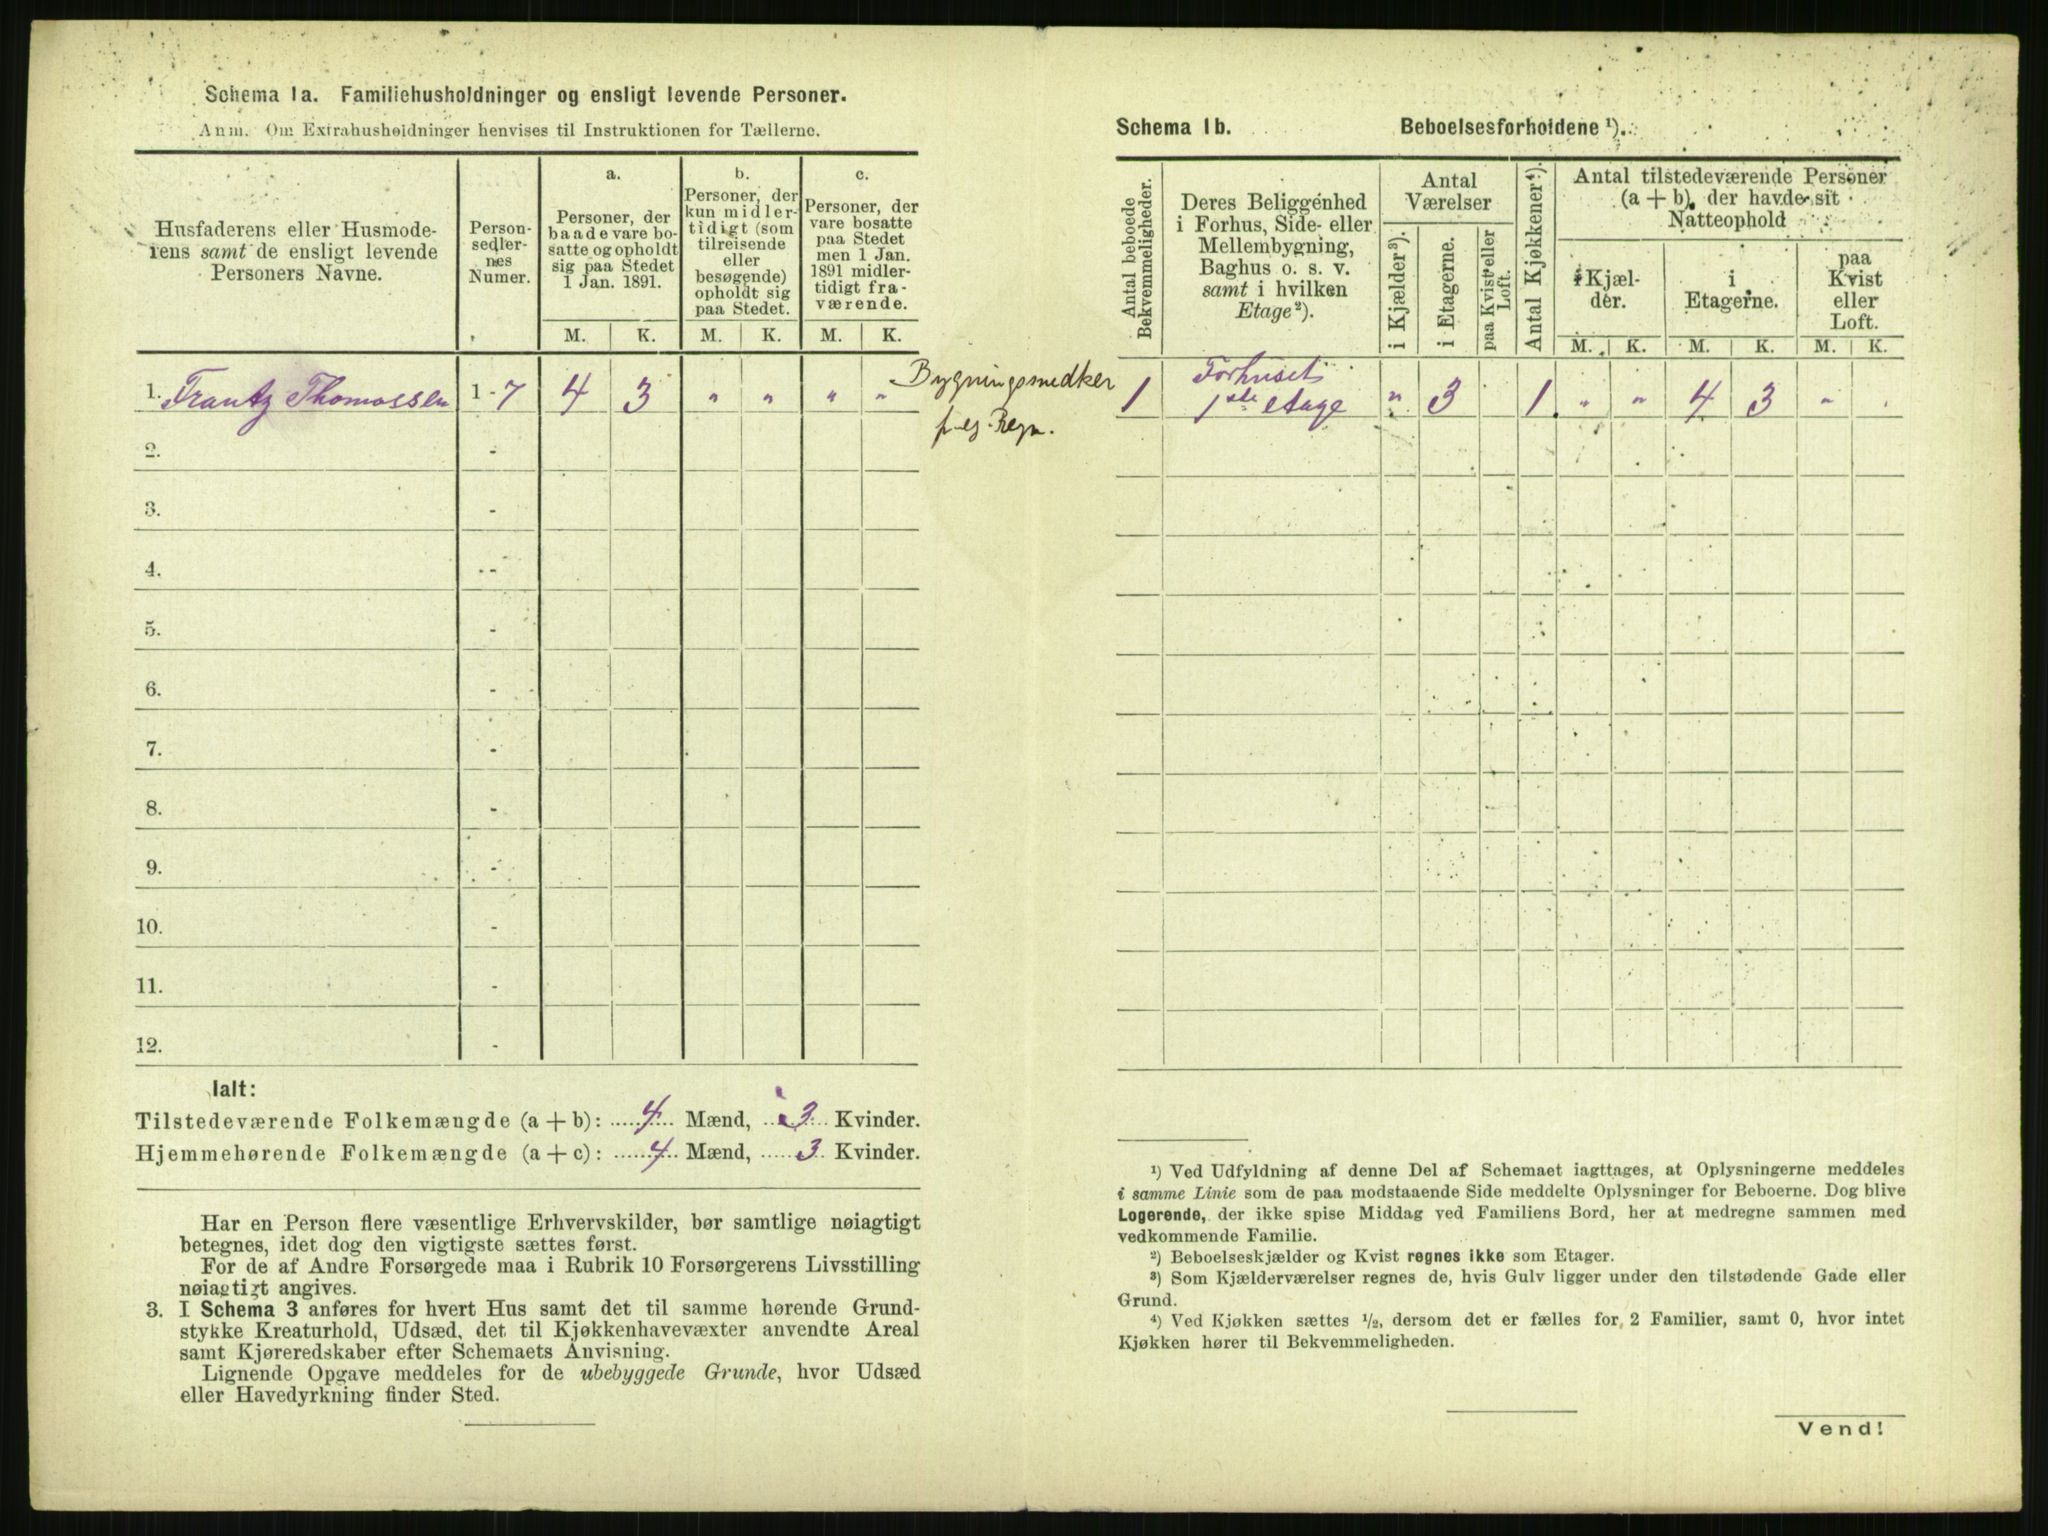 Schema 1a. Familiehusholdninger og ensligt levende Personer.
Anm. Om Extrahusholdninger henvises til Instruktionen for Tællerne.
Husfaderens eller Husmode-
rens samt de ensligt levende
Personers Navne.
Person-
sedler-
nes
Numer.
a.
Personer, der
baade vare bo-
satte og opholdt
sig paa Stedet
1 Jan. 1891.
b.
Personer, der
kun midler-
tidigt (som
tilreisende
eller
besøgende)
opholdt sig
paa Stedet.
c.
Personer, der
vare bosatte
paa Stedet
men 1 Jan.
1891 midler-
tidigt fra-
værende.
M. K. M. K. M. K.
1. Frantz Thomassen 1 - 7 4 3 „ „ „ „
Bygningssnedker
f. eg. Regn.
2. -
3. -
4. -
5. -
6. -
7. -
8. -
9. -
10. -
11. -
12. -
Ialt:
Tilstedeværende Folkemængde (a + b): 4 Mænd, 3 Kvinder.
Hjemmehørende Folkemængde (a + c): 4 Mænd, 3 Kvinder.
Har en Person flere væsentlige Erhvervskilder, bør samtlige nøiagtigt
betegnes, idet dog den vigtigste sættes først.
For de af Andre Forsørgede maa i Rubrik 10 Forsørgerens Livsstilling
nøiagtigt angives.
3. I Schema 3 anføres for hvert Hus samt det til samme hørende Grund-
stykke Kreaturhold, Udsæd, det til Kjøkkenhavevæxter anvendte Areal
samt Kjøreredskaber efter Schemaets Anvisning.
Lignende Opgave meddeles for de ubebyggede Grunde, hvor Udsæd
eller Havedyrkning finder Sted.
Schema 1b. Beboelsesforholdene ¹).
Antal beboede
Bekvemmeligheder.
Deres Beliggenhed
i Forhus, Side- eller
Mellembygning,
Baghus o. s. v.
samt i hvilken
Etage²).
Antal
Værelser
i Kjælder³).
i Etagerne.
paa Kvist eller
Loft.
Antal Kjøkkener⁴).
Antal tilstedeværende Personer
(a + b), der havde sit
Natteophold
i Kjæl-
der.
i
Etagerne.
paa
Kvist
eller
Loft.
M. K. M. K. M. K.
Forhuset
1 1ste etage „ 3 1 „ „ 4 3 „
¹) Ved Udfyldning af denne Del af Schemaet iagttages, at Oplysningerne meddeles
i samme Linie som de paa modstaaende Side meddelte Oplysninger for Beboerne. Dog blive
Logerende, der ikke spise Middag ved Familiens Bord, her at medregne sammen med
vedkommende Familie.
²) Beboelseskjælder og Kvist regnes ikke som Etager.
³) Som Kjælderværelser regnes de, hvis Gulv ligger under den tilstødende Gade eller
Grund.
⁴) Ved Kjøkken sættes ½, dersom det er fælles for 2 Familier, samt 0, hvor intet
Kjøkken hører til Bekvemmeligheden.
Vend!